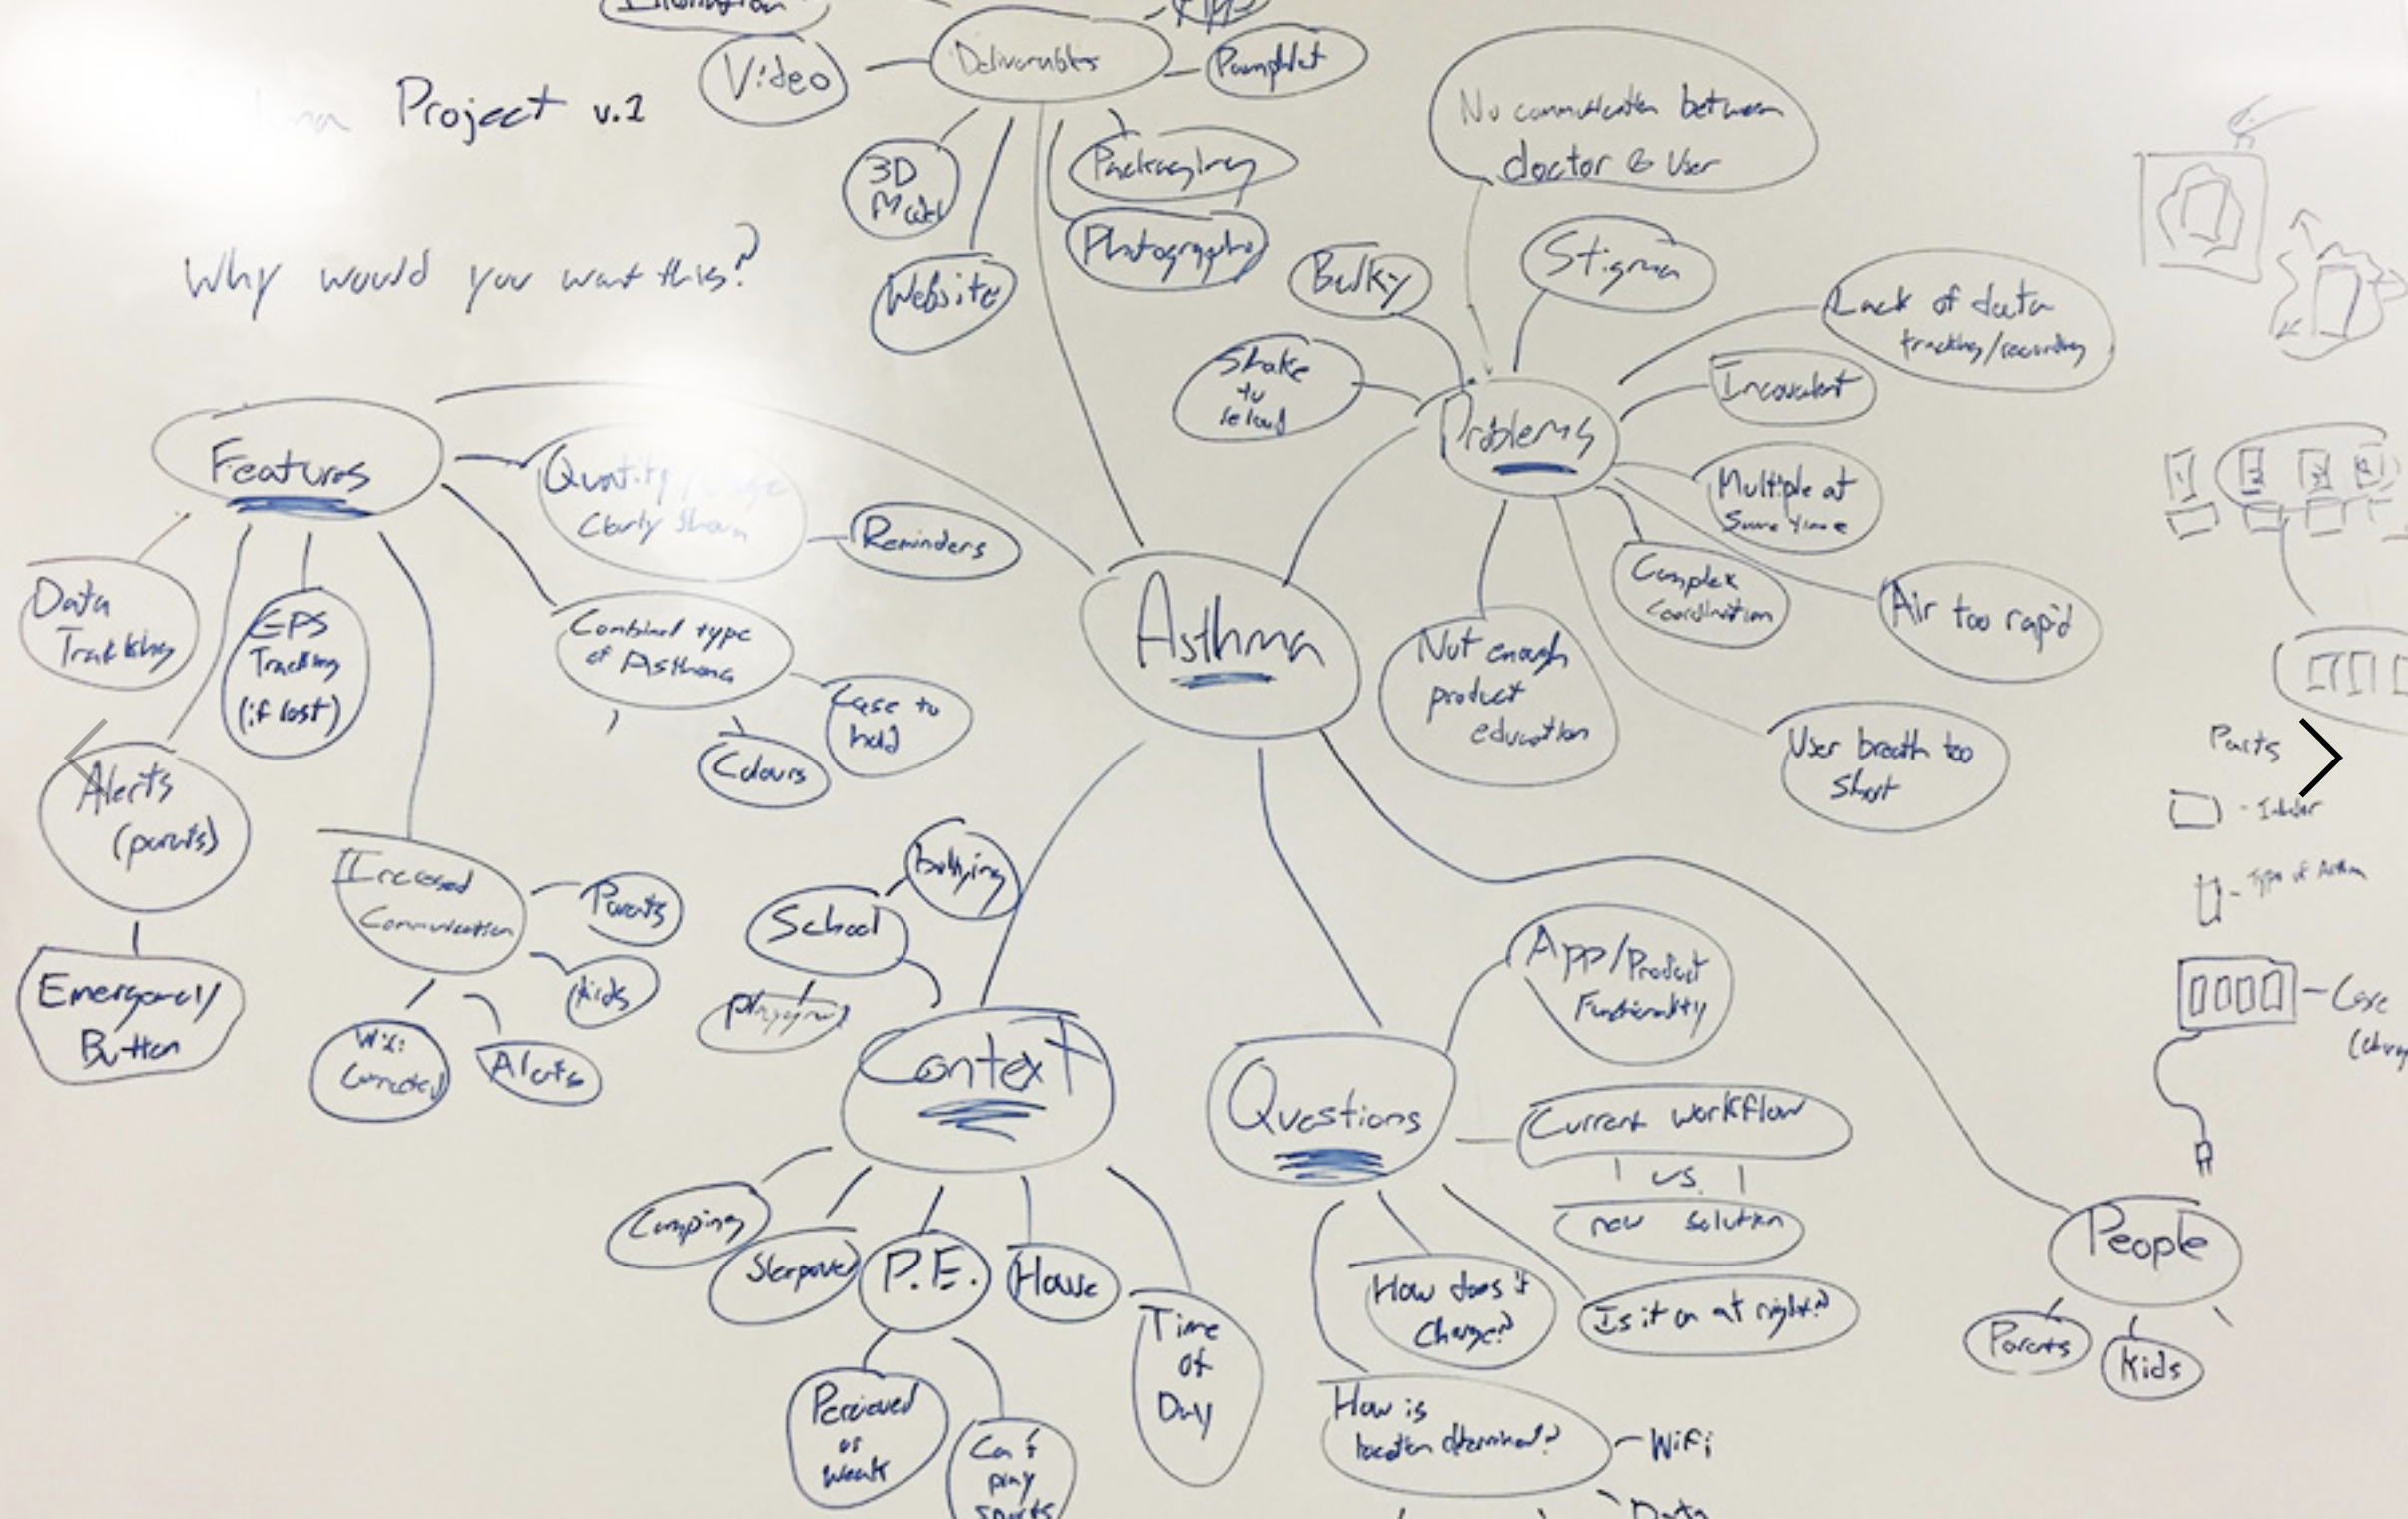 Deliverables
Video
Pamphlet
Project v.1
3D
Model
Packaging
Photography
Website
Why would you want this?
No communication between
doctor & User
Bulky
Stigma
Shake
to
reload
Problems
Lack of data
tracking/recording
Multiple at
Same time
Complex
Coordination
Air too rapid
Not enough
product
education
User breath too
Short
Features
Quantity/
Clearly Shown
Reminders
Data
Tracking
GPS
Tracking
(if lost)
Combined type
of Asthma
Case to
hold
Colours
Alerts
Emergency
Button
Increased
Communication
Parents
Kids
Wifi
Connected
Alerts
Asthma
Bullying
School
Context
Camping
Sleepover
P.E.
House
Time
of
Day
Percieved
as
weak
Can't
play
sports
Questions
App/Product
Functionality
Current workflow
vs.
new solution
How does it
Charge?
Is it on at night?
How is
location determined?
WiFi
Data
People
Parents
Kids
Parts
- Inhaler
- Type of Asthma
- Case